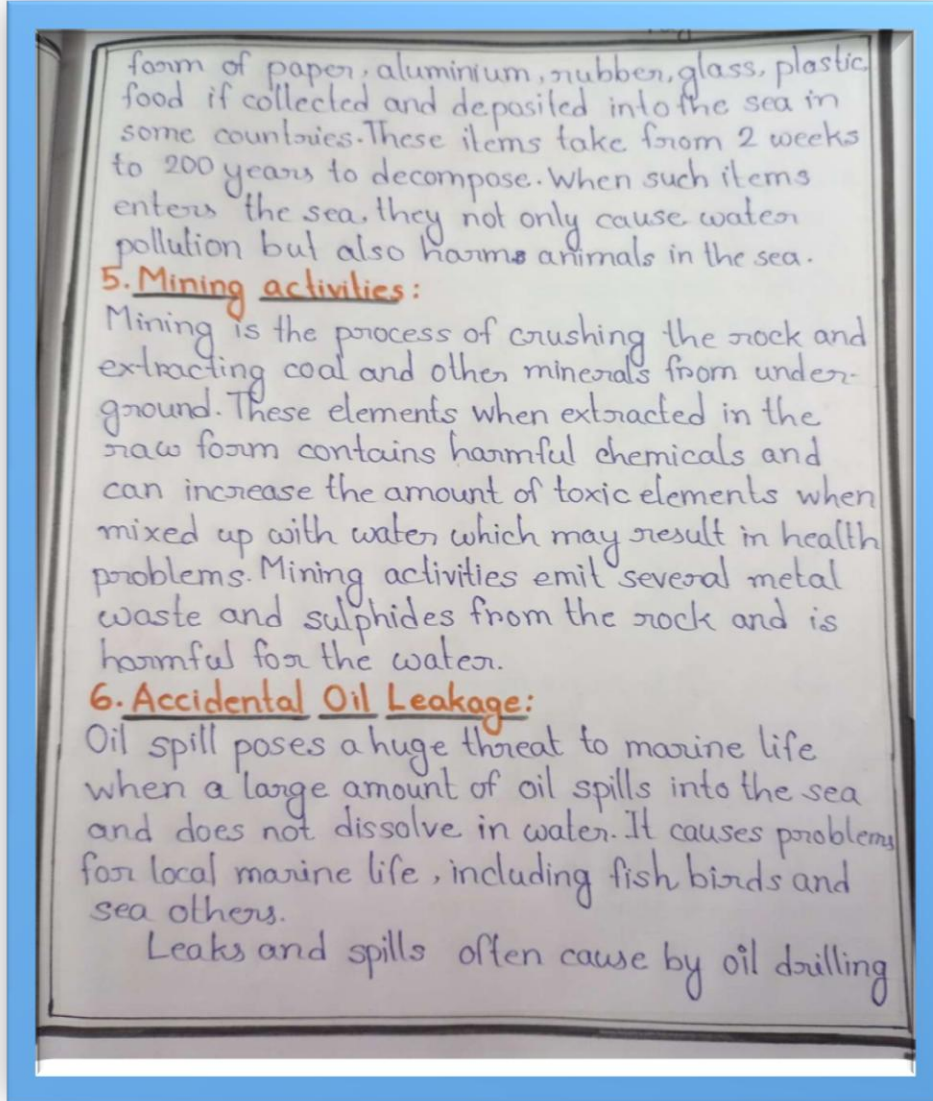 form of paper, aluminium, rubber, glass, plastic
food if collected and deposited into the sea in
some countries. These items take from 2 weeks
to 200 years to decompose. When such items
enters the sea, they not only cause water
pollution but also harms animals in the sea.
5. Mining activities:
Mining is the process of crushing the rock and
extracting coal and other minerals from under-
ground. These elements when extracted in the
raw form contains harmful chemicals and
can increase the amount of toxic elements when
mixed up with water which may result in health
problems. Mining activities emit several metal
waste and sulphides from the rock and is
harmful for the water.
6. Accidental Oil Leakage:
Oil spill poses a huge threat to marine life
when a large amount of oil spills into the sea
and does not dissolve in water. It causes problems
for local marine life, including fish birds and
sea others.
Leaks and spills often cause by oil drilling